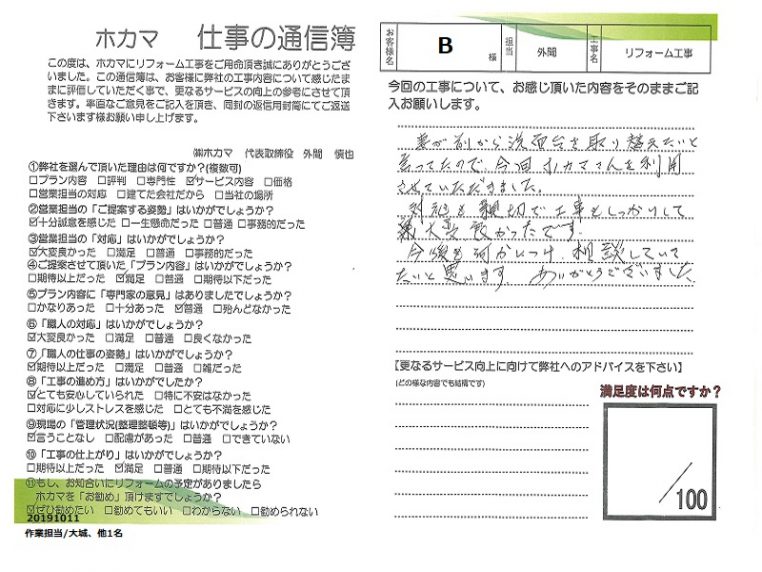 ホカマ 仕事の通信簿
この度は、ホカマにリフォーム工事をご用命頂き誠にありがとうござ
いました。この通信簿は、お客様に弊社の工事内容について感じたま
まに評価していただく事で、更なるサービスの向上の参考にさせて頂
きます。率直なご意見をご記入を頂き、同封の返信用封筒にてご返送
下さいます様お願い申し上げます。
㈱ホカマ 代表取締役 外間 慎也
①弊社を選んで頂いた理由は何ですか?(複数可)
□プラン内容 □評判 □専門性 ☑サービス内容 □価格
□営業担当の対応 □建てた会社だから □当社の場所
②営業担当の「ご提案する姿勢」はいかがでしょうか?
☑十分誠意を感じた □一生懸命だった □普通 □事務的だった
③営業担当の「対応」はいかがでしょうか?
☑大変良かった □満足 □普通 □事務的だった
④ご提案させて頂いた「プラン内容」はいかがでしょうか?
□期待以上だった ☑満足 □普通 □期待以下だった
⑤プラン内容に「専門家の意見」はありましたでしょうか?
□かなりあった □十分あった ☑普通 □殆んどなかった
⑥「職人の対応」はいかがでしょうか?
☑大変良かった □満足 □普通 □良くなかった
⑦「職人の仕事の姿勢」はいかがでしょうか?
☑期待以上だった □満足 □普通 □雑だった
⑧「工事の進め方」はいかがでしたか?
☑とても安心していられた □特に不安はなかった
□対応に少しストレスを感じた □とても不満を感じた
⑨現場の「管理状況(整理整頓等)」はいかがでしょうか?
☑言うことなし □配慮があった □普通 □できていない
⑩「工事の仕上がり」はいかがでしょうか?
□期待以上だった ☑満足 □普通 □期待以下だった
⑪もし、お知合いにリフォームの予定がありましたら
ホカマを「お勧め」頂けますでしょうか?
☑ぜひ勧めたい □勧めてもいい □わからない □勧められない
20191011
作業担当/大城、他1名
お客様名 B 様 担当 外間 工事名 リフォーム工事
今回の工事について、お感じ頂いた内容をそのままご記
入お願いします。
妻が前から洗面台を取り替えたいと
言ってたので、今回ホカマさんを利用
させていただきました。
対応も親切で工事もしっかりして
大変良かったです。
今後も何かにつけ、相談していき
たいと思います。ありがとうございました
【更なるサービス向上に向けて弊社へのアドバイスを下さい】
(どの様な内容でも結構です)
満足度は何点ですか?
/100